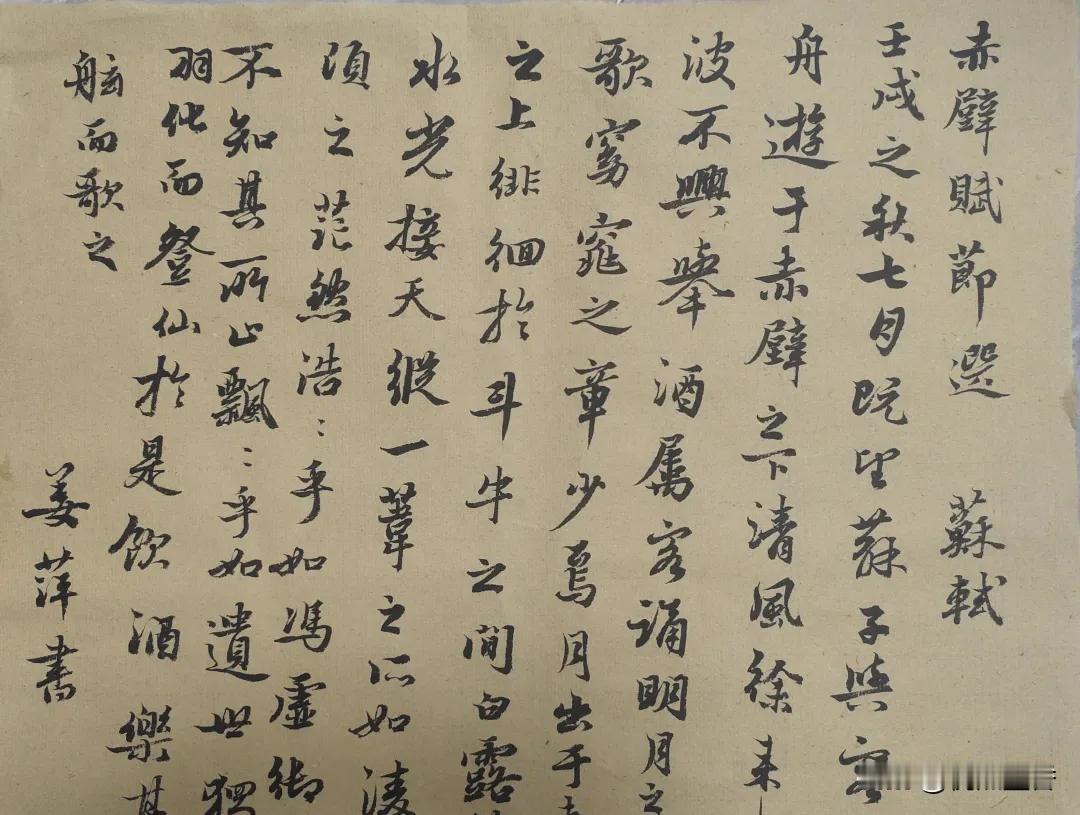 赤壁賦節選 蘇軾
壬戌之秋七月既望蘇子與客
舟遊于赤壁之下清風徐来
波不興舉酒属客誦明月之
歌窈窕之章少焉月出于
之上徘徊於斗牛之間白露
水光接天縱一葦之所如凌
頃之茫然浩:乎如馮虛御
不知其所止飄:乎如遺世
羽化而登仙於是飲酒樂甚
舷而歌之
姜萍書